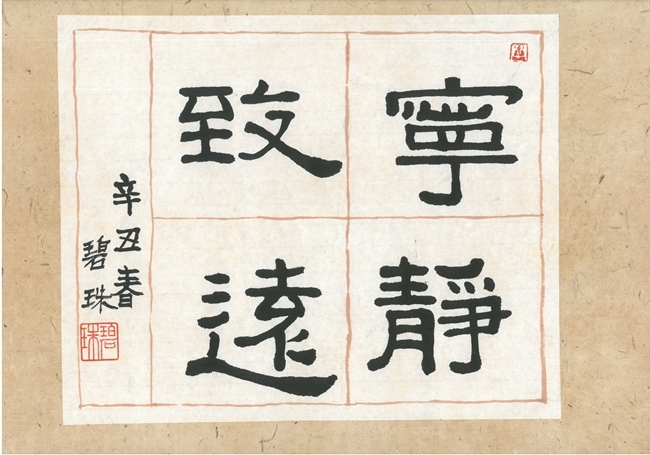 寧靜
致遠
辛丑春
碧珠
碧珠